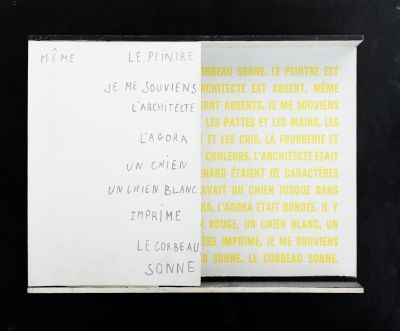 MÊME LE PEINTRE
JE ME SOUVIENS
L'ARCHITECTE
L'AGORA
UN CHIEN
UN CHIEN BLANC
IMPRIMÉ
LE CORBEAU
SONNE
CORBEAU SONNE. LE PEINTRE EST
RCHITECTE EST ABSENT. MÊME
SONT ABSENTS. JE ME SOUVIENS
LES PATTES ET LES MAINS, LES
ET LES CRIS, LA FOURBERIE ET
COULEURS. L'ARCHITECTE ÉTAIT
ENARD ÉTAIENT DE CARACTÈRES
AVAIT DU CHIEN JUSQUE DANS
RA. L'AGORA ÉTAIT BONDÉE. IL Y
N ROUGE, UN CHIEN BLANC, UN
ÈRE IMPRIMÉ. JE ME SOUVIENS
SONNE. LE CORBEAU SONNE.